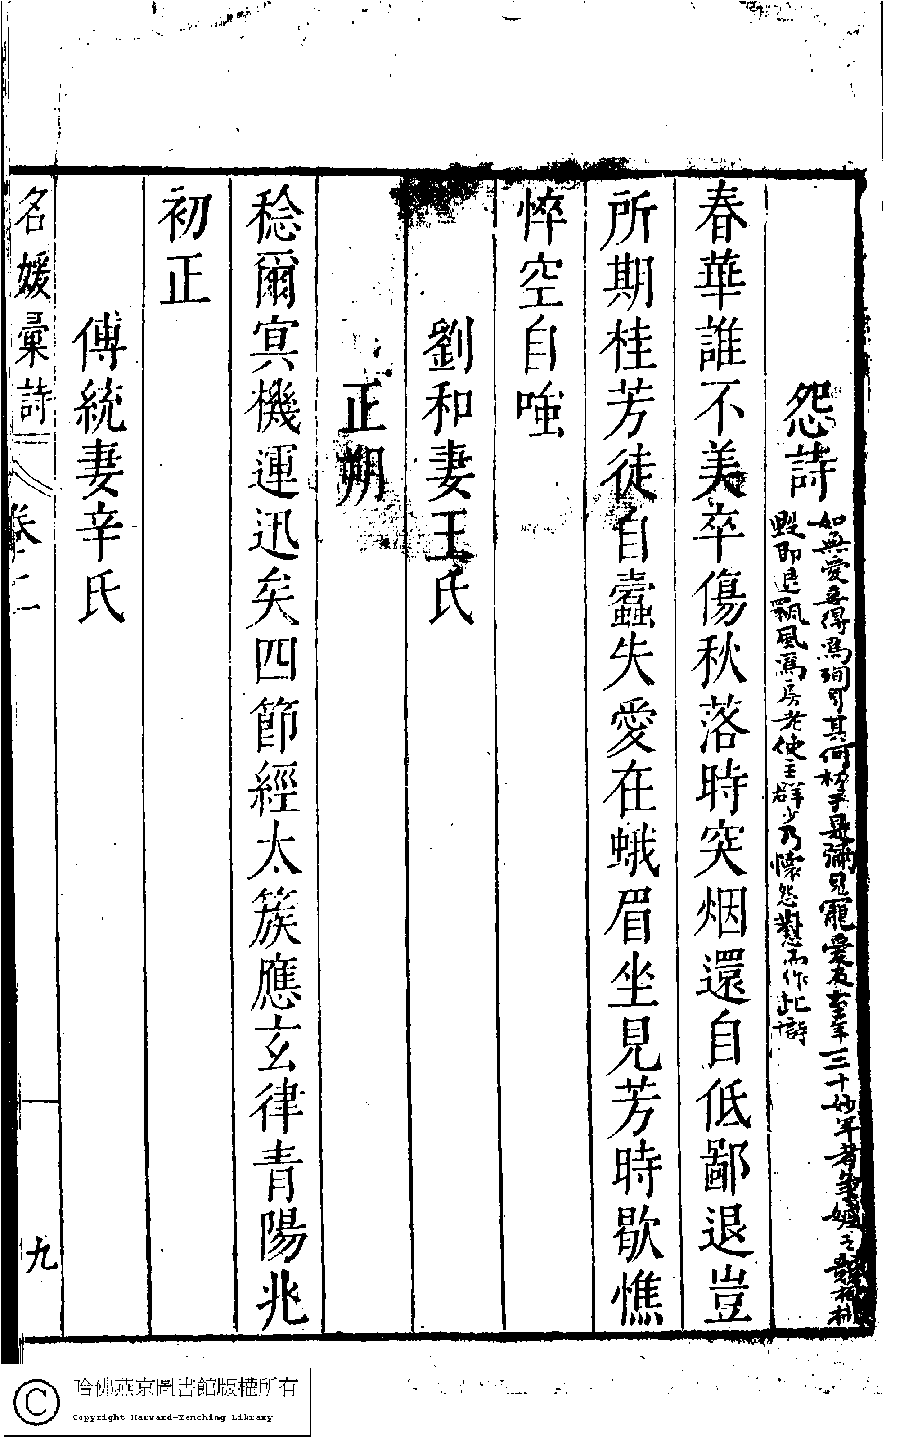 怨詩
春華誰不美卒傷秋落時突烟還自低鄙退豈
所期桂芳徒自蠹失愛在蛾眉坐見芳時歇憔
悴空自嗤
劉和妻王氏
正朔
稔爾冥機運迅矣四節經太簇應玄律青陽兆
初正
傅統妻辛氏
名媛彙詩
卷二
九
哈佛燕京圖書館版權所有
Copyright Harvard-Yenching Library